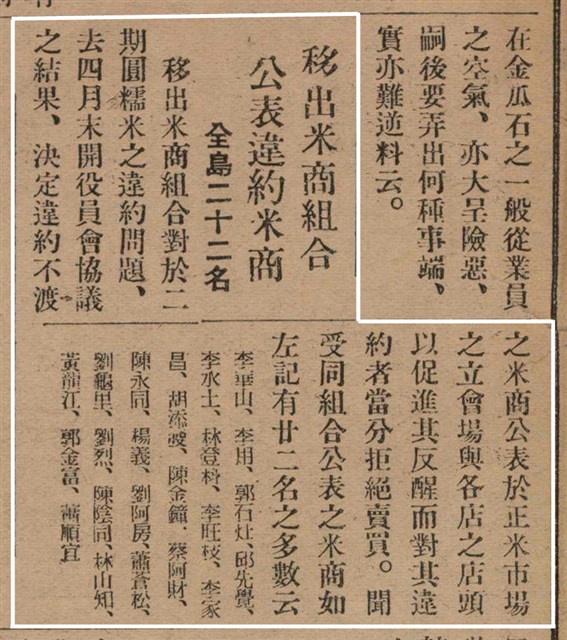 在金瓜石之一般從業員
之空氣、亦大呈險惡、
嗣後要弄出何種事端、
實亦難逆料云。
移出米商組合
公表違約米商
全島二十二名
移出米商組合對於二
期圓糯米之違約問題、
去四月末開役員會協議
之結果、決定違約不渡
之米商公表於正米市場
之立會場與各店之店頭
以促進其反醒而對其違
約者當分拒絕賣買。聞
受同組合公表之米商如
左記有廿二名之多數云
李華山、李用、郭石灶、邱先覺、
李水土、林登科、李旺枝、李家
昌、胡添聲、陳金鐘、蔡阿財、
陳永同、楊義、劉阿房、蕭蒼松、
劉龜里、劉烈、陳陰同、林山知、
黃龍江、郭金富、蕭順宜